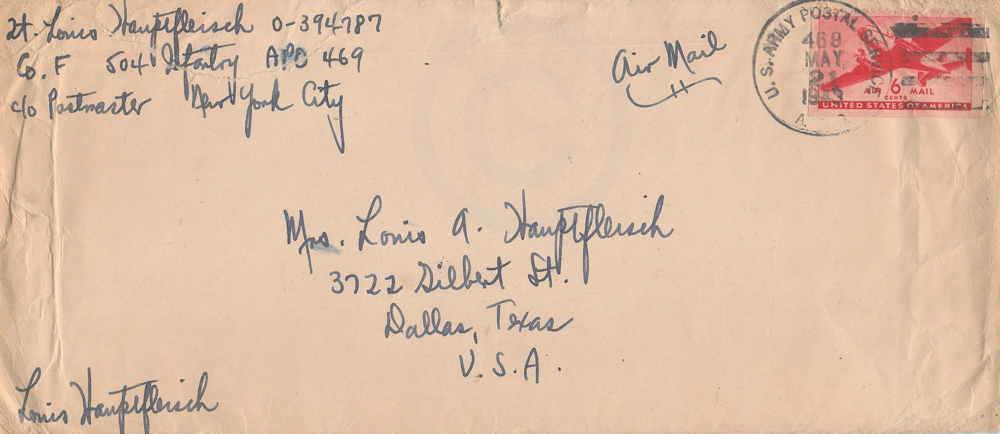 Lt. Louis Hauptfleisch O-394787
Co. F 504 Infantry APO 469
c/o Postmaster New York City
Air Mail
U.S. ARMY POSTAL SERVICE
468
MAY
21
A.
AIR 6 MAIL
CENTS
UNITED STATES OF AMERICA
Mrs. Louis A. Hauptfleisch
3722 Gilbert St.
Dallas, Texas
U.S.A.
Louis Hauptfleisch